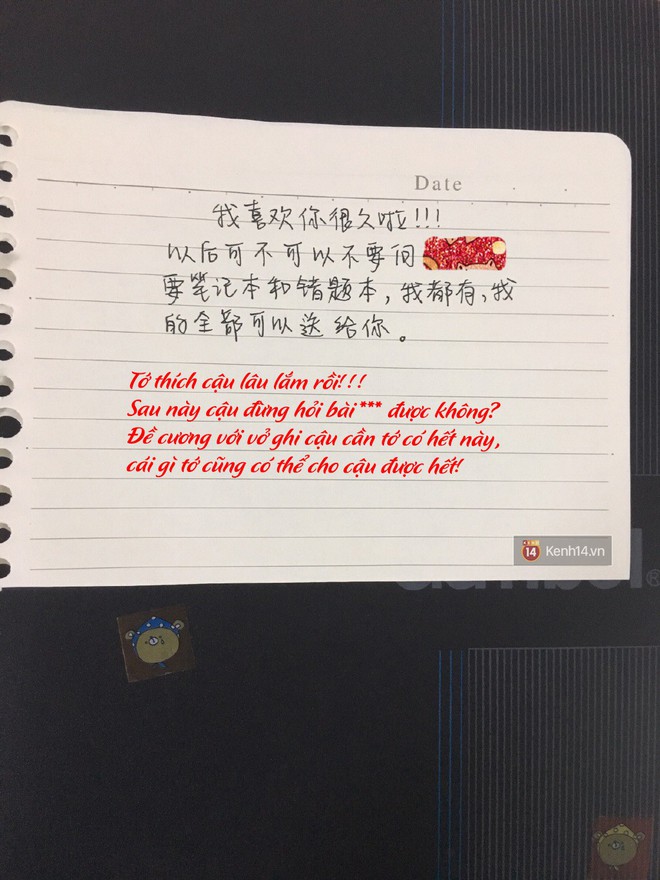 Date
我喜欢你很久啦!!!
以后可不可以不要问
要笔记本和错题本，我都有，我
的全部可以送给你。
Tớ thích cậu lâu lắm rồi!!!
Sau này cậu đừng hỏi bài *** được không?
Đề cương với vở ghi cậu cần tớ có hết này,
cái gì tớ cũng có thể cho cậu được hết!
14 Kenh14.vn